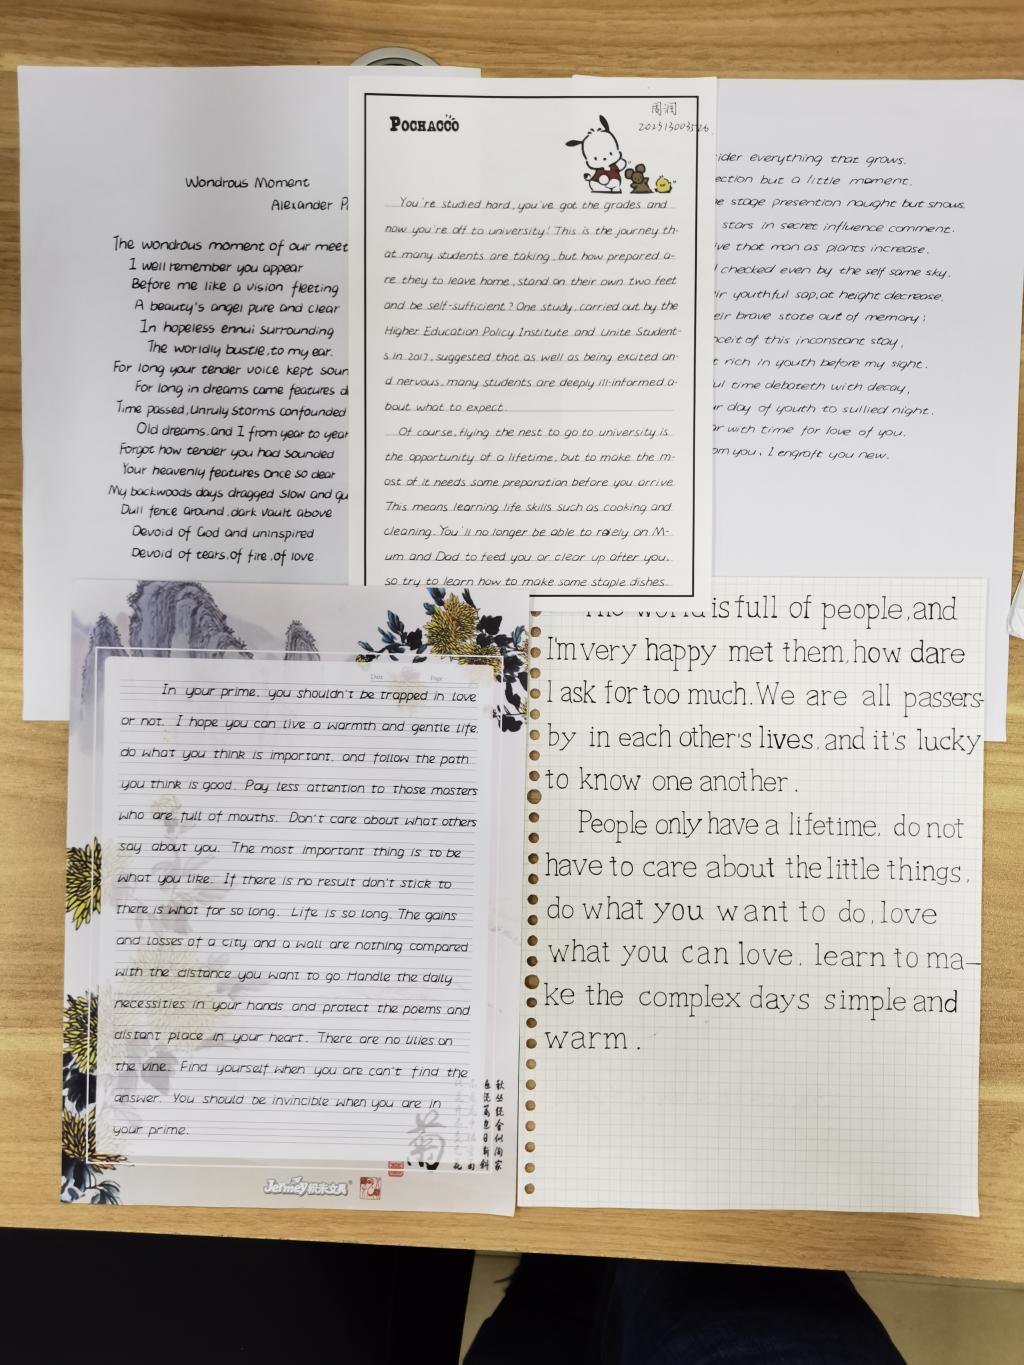 Wondrous Moment
Alexander
The wondrous moment of our meet
I well remember you appear
Before me like a vision fleeting
A beauty's angel pure and clear
In hopeless ennui surrounding
The worldly bustle, to my ear.
For long your tender voice kept soun
For long in dreams came features d
Time passed, Unruly storms confounded
Old dreams, and I from year to year
Forgot how tender you had sounded
Your heavenly features once so dear
My backwoods days dragged slow and qu
Dull fence around, dark vault above
Devoid of God and uninspired
Devoid of tears, of fire, of love
POCHACCO
周润
You're studied hard, you've got the grades and
now you're off to university! This is the journey th-
at many students are taking, but how prepared a-
re they to leave home, stand on their own two feet
and be self-sufficient? One study, carried out by the
Higher Education Policy Institute and Unite Student-
s in 2017, suggested that as well as being excited an-
d nervous, many students are deeply ill-informed a-
bout what to expect.
Of course, flying the nest to go to university is
the opportunity of a lifetime, but to make the m-
ost of it needs some preparation before you arrive
This means learning life skills such as cooking and
cleaning. You'll no longer be able to rely on M-
um and Dad to feed you or clear up after you,
so try to learn how to make some staple dishes.
ider everything that grows.
ection but a little moment.
e stage presention naught but shows
stars in secret influence comment.
ive that man as plants increase,
checked even by the self same sky.
ir youthful sap, at height decrease,
eir brave state out of memory;
nceit of this inconstant stay,
t rich in youth before my sight.
ul time debateth with decay,
ur day of youth to sullied night.
ar with time for love of you.
om you, I engraft you new.
Date Page
In your prime, you shouldn't be trapped in love
or not. I hope you can live a warmth and gentle life,
do what you think is important, and follow the path
you think is good. Pay less attention to those masters
who are full of mouths. Don't care about what others
say about you. The most important thing is to be
what you like. If there is no result don't stick to
there is what for so long. Life is so long. The gains
and losses of a city and a wall are nothing compared
with the distance you want to go. Handle the daily
necessities in your hands and protect the poems and
distant place in your heart. There are no lilies on
the vine. Find yourself when you are can't find the
answer. You should be invincible when you are in
your prime.
菊
Jermey积米文具
The world is full of people, and
I'm very happy met them, how dare
I ask for too much. We are all passers-
by in each other's lives, and it's lucky
to know one another.
People only have a lifetime, do not
have to care about the little things,
do what you want to do, love
what you can love, learn to ma-
ke the complex days simple and
warm.